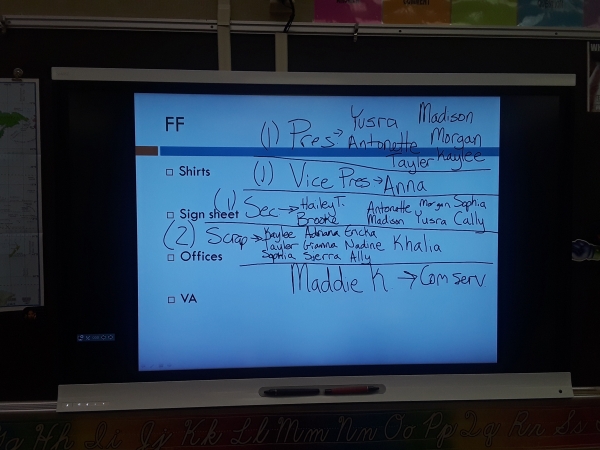 FF
(1) Pres → Yusra Madison
Antonette Morgan
Tayler Kaylee
Shirts
(1) Vice Pres → Anna
Sign sheet
(1) Sec → Hailey T. Antonette Morgan Sophia
Brooke Madison Yusra Cally
(2) Scrap → Kaylee Adriana Ericka
Tayler Gianna Nadine Khalia
Sophia Sierra Ally
Offices
Maddie K → Com serv
VA
Hh Ii Jj Kk Ll Mm Nn Oo Pp Qq Rr Ss